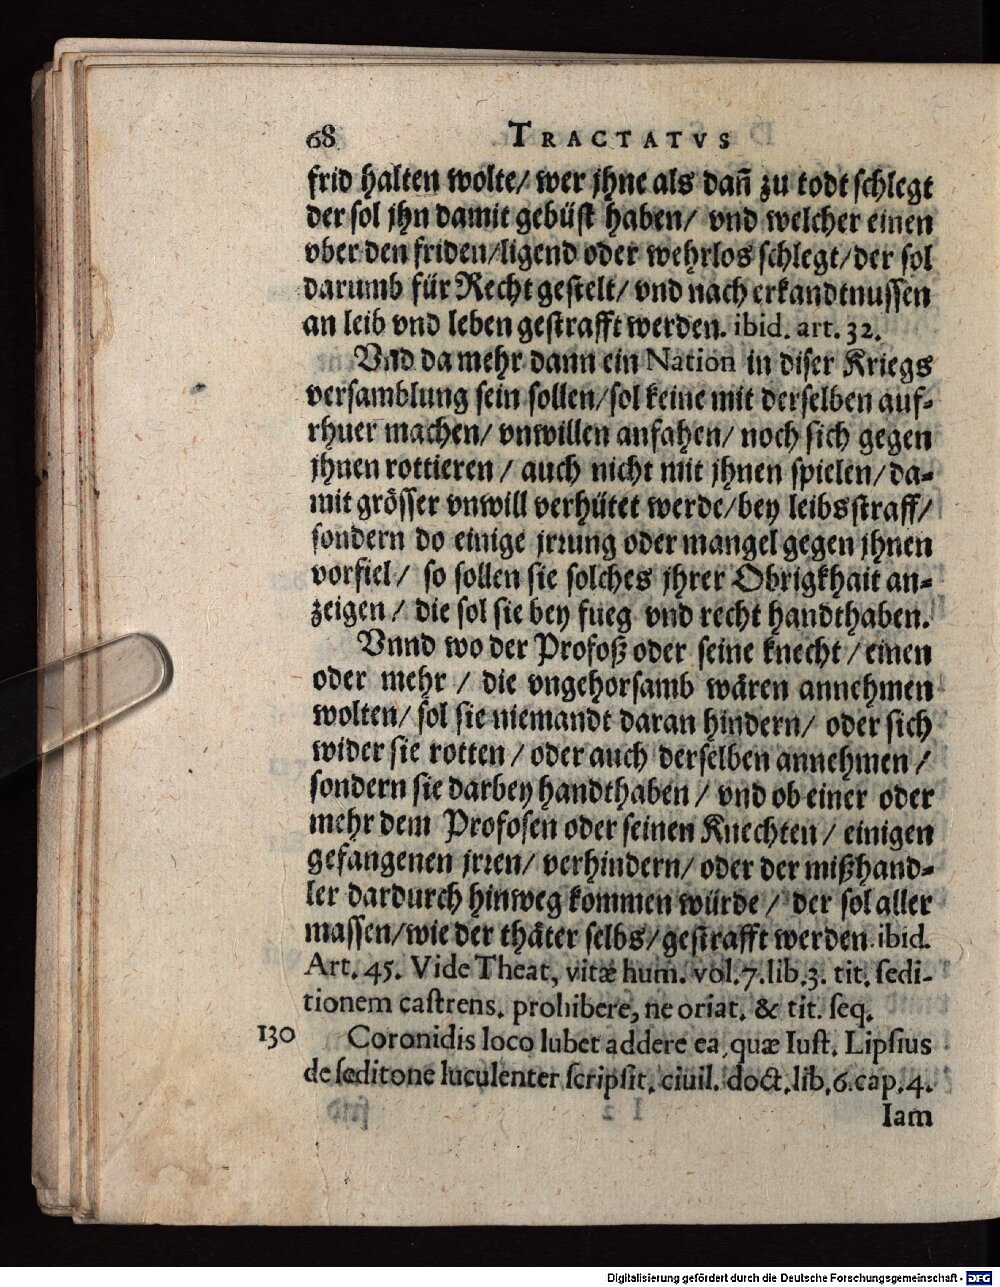 68 TRACTATVS
frid halten wolte/ wer jhne als dañ zu todt schlegt
der sol jhn damit gebüst haben/ vnd welcher einen
vber den friden/ligend oder wehrlos schlegt/der sol
darumb für Recht gestelt/ vnd nach erkandtnussen
an leib vnd leben gestrafft werden. ibid. art. 32.
Vnd da mehr dann ein Nation in diser Kriegs
versamblung sein sollen/sol keine mit derselben auf-
rhuer machen/ vnwillen anfahen/ noch sich gegen
jhnen rottieren / auch nicht mit jhnen spielen/ da-
mit grösser vnwill verhütet werde/bey leibsstraff/
sondern do einige jrrung oder mangel gegen jhnen
vorfiel/ so sollen sie solches jhrer Obrigkhait an-
zeigen / die sol sie bey fueg vnd recht handthaben.
Vnnd wo der Profoß oder seine knecht / einen
oder mehr / die vngehorsamb wären annehmen
wolten/ sol sie niemandt daran hindern/ oder sich
wider sie rotten / oder auch derselben annehmen /
sondern sie darbey handthaben / vnd ob einer oder
mehr dem Profosen oder seinen Knechten / einigen
gefangenen jrren/ verhindern/ oder der mißhand-
ler dardurch hinweg kommen würde / der sol aller
massen/wie der thäter selbs/gestrafft werden. ibid.
Art. 45. Vide Theat, vitæ hum. vol. 7. lib. 3. tit. ſedi-
tionem caſtrens. prohibere, ne oriat. & tit. ſeq.
130 Coronidis loco lubet addere ea, quæ Iuſt. Lipſius
de ſeditone luculenter ſcripſit. ciuil. doct. lib. 6. cap. 4.
Iam
Digitalisierung gefördert durch die Deutsche Forschungsgemeinschaft - DFG